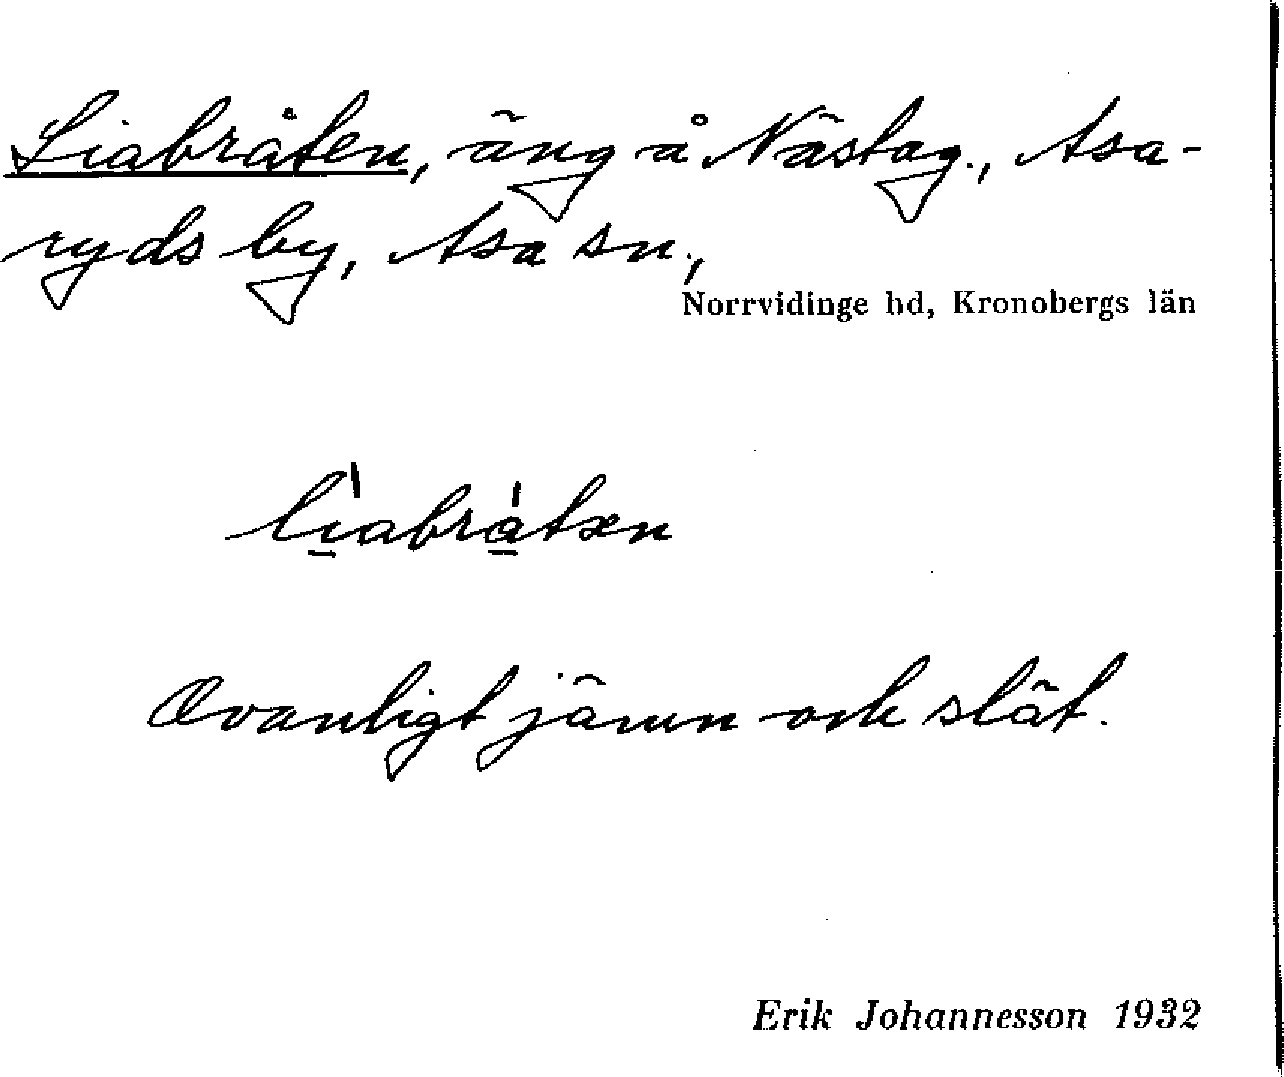 Liabråten, äng å Nästag., Asa-
ryds by, Asa sn.,
Norrvidinge hd, Kronobergs län
lìabråtən
Ovanligt jämn och slät.
Erik Johannesson 1932